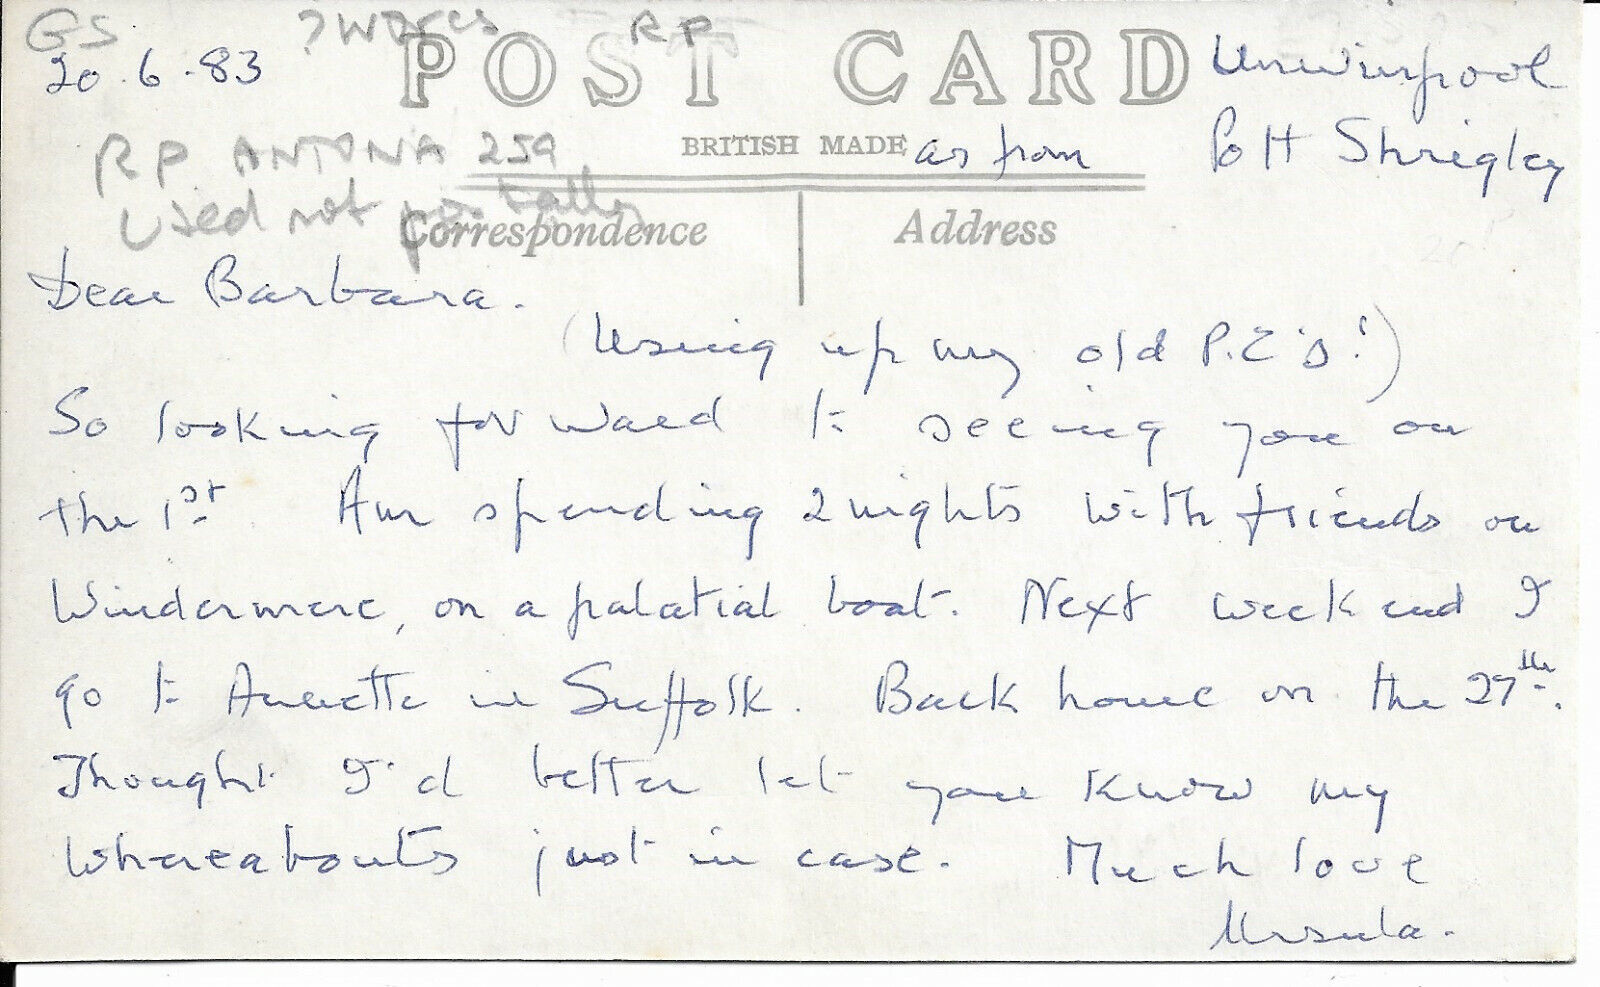 GS ? Worcs RP
20.6.83 POST CARD
BRITISH MADE as from Pott Shrigley
RP ANTONA 259
Used not postally
Correspondence Address
Dear Barbara.
(Using up my old P.C's!)
So looking forward to seeing you on
the 1st. Am spending 2 nights with friends on
Windermere, on a palatial boat. Next week end I
go to Annette in Suffolk. Back home on the 27th.
Thought I'd better let you know my
whereabouts just in case. Much love
Ursula.